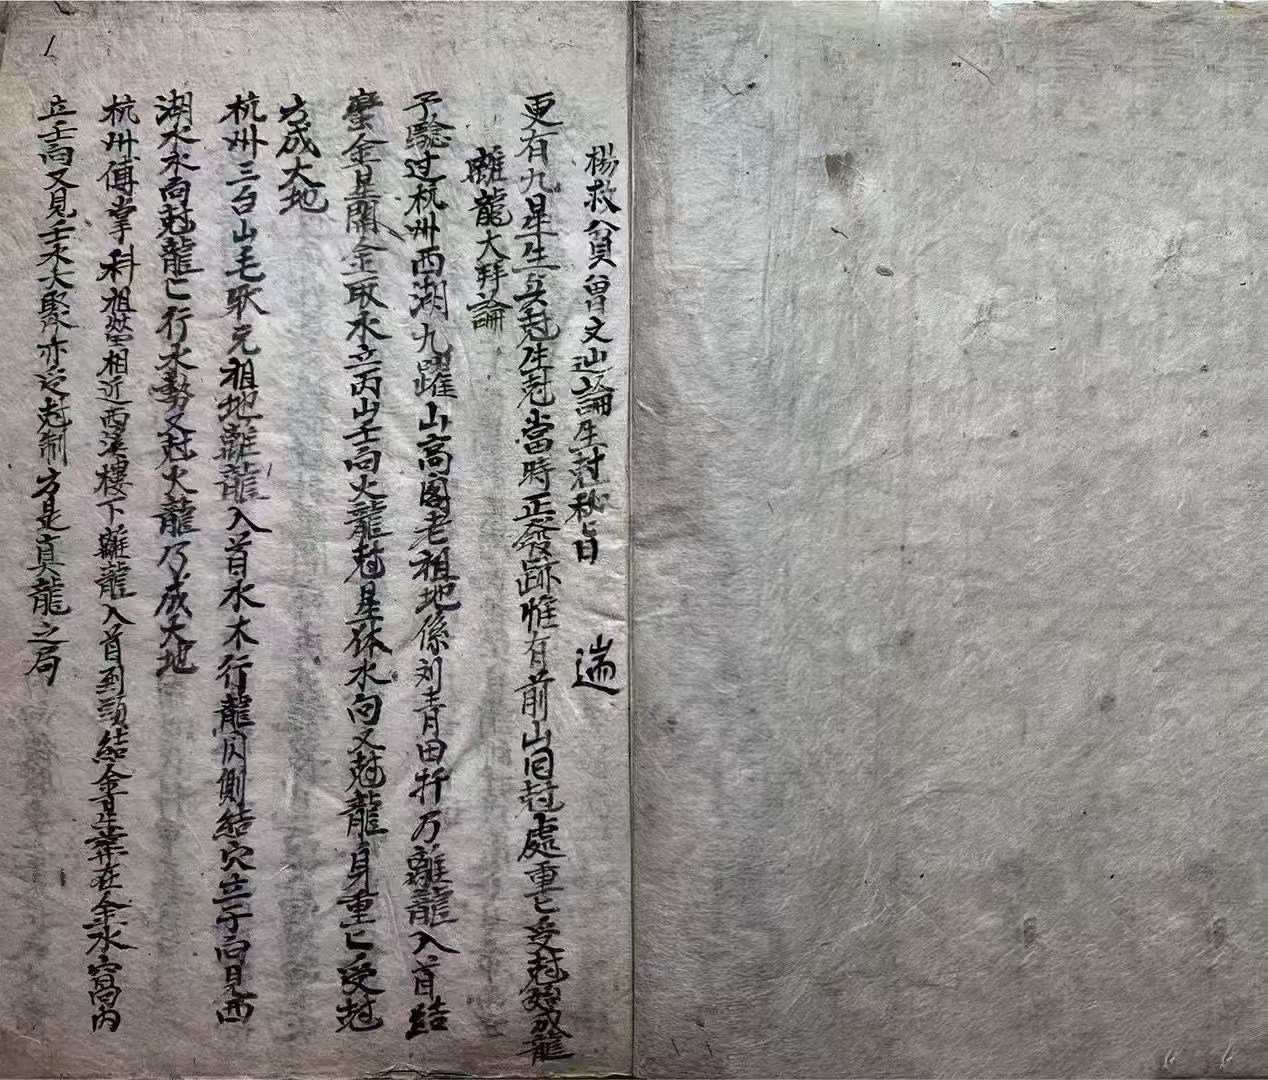 楊救貧曾文辿論生尅秘旨 耑
更有九星生與尅生尅當時正發跡惟有前山回尅處重匕受尅始成龍
離龍大拜論
予驗过杭州西湖九躍山高閣老祖地係刘青田扦乃離龍入首結
金星開金取水立丙山壬向火龍尅星体水向又尅龍身重匕受尅
方成大地
杭州三台山毛耿元祖地離龍入首水木行龍閃側結穴立子向見西
湖水水向尅龍匕行水勢又尅火龍乃成大地
杭州傅掌科祖塋相近西溪樓下離龍入首到頭結金星葬在金水窩內
立壬向又見壬水大聚亦受尅制方是真龍之局